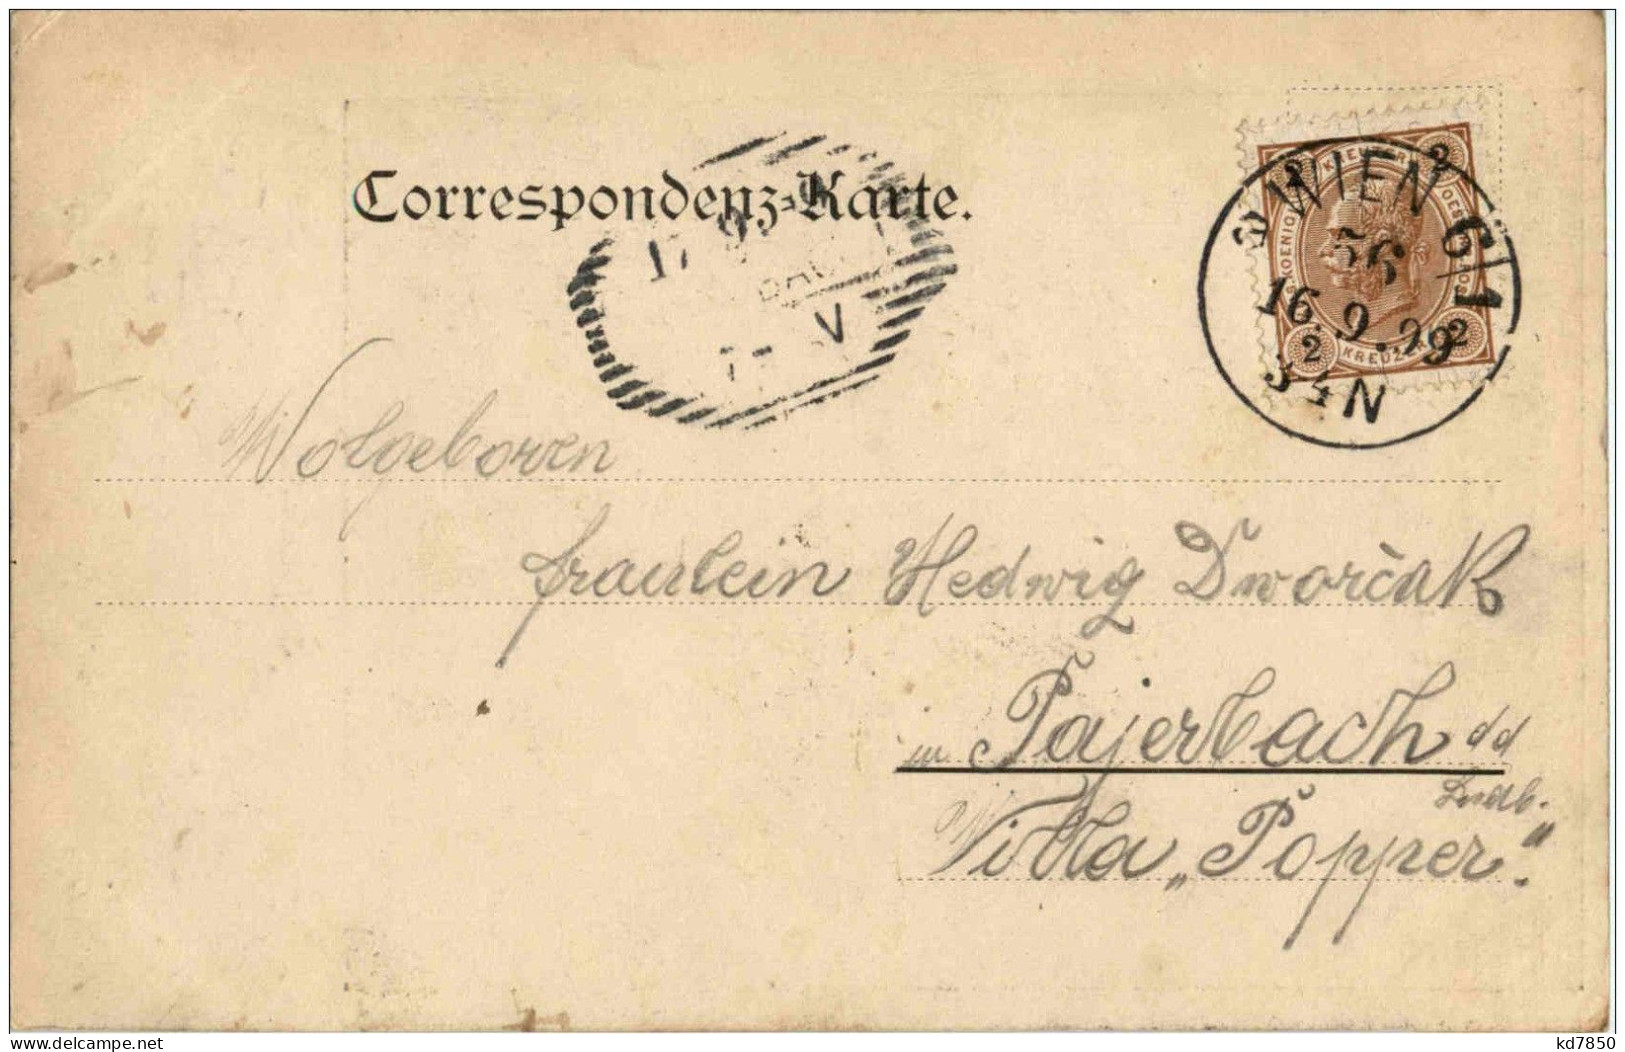 Correspondenz-Karte.
WIEN 6/1
56
16. 9. 99
3-4N
KREUZER
2
2
17 9
V
Wolgeboren
fraulein Hedwig Dworčak
in Pajerbach
Villa „Popper".
delcampe.net
kd7850